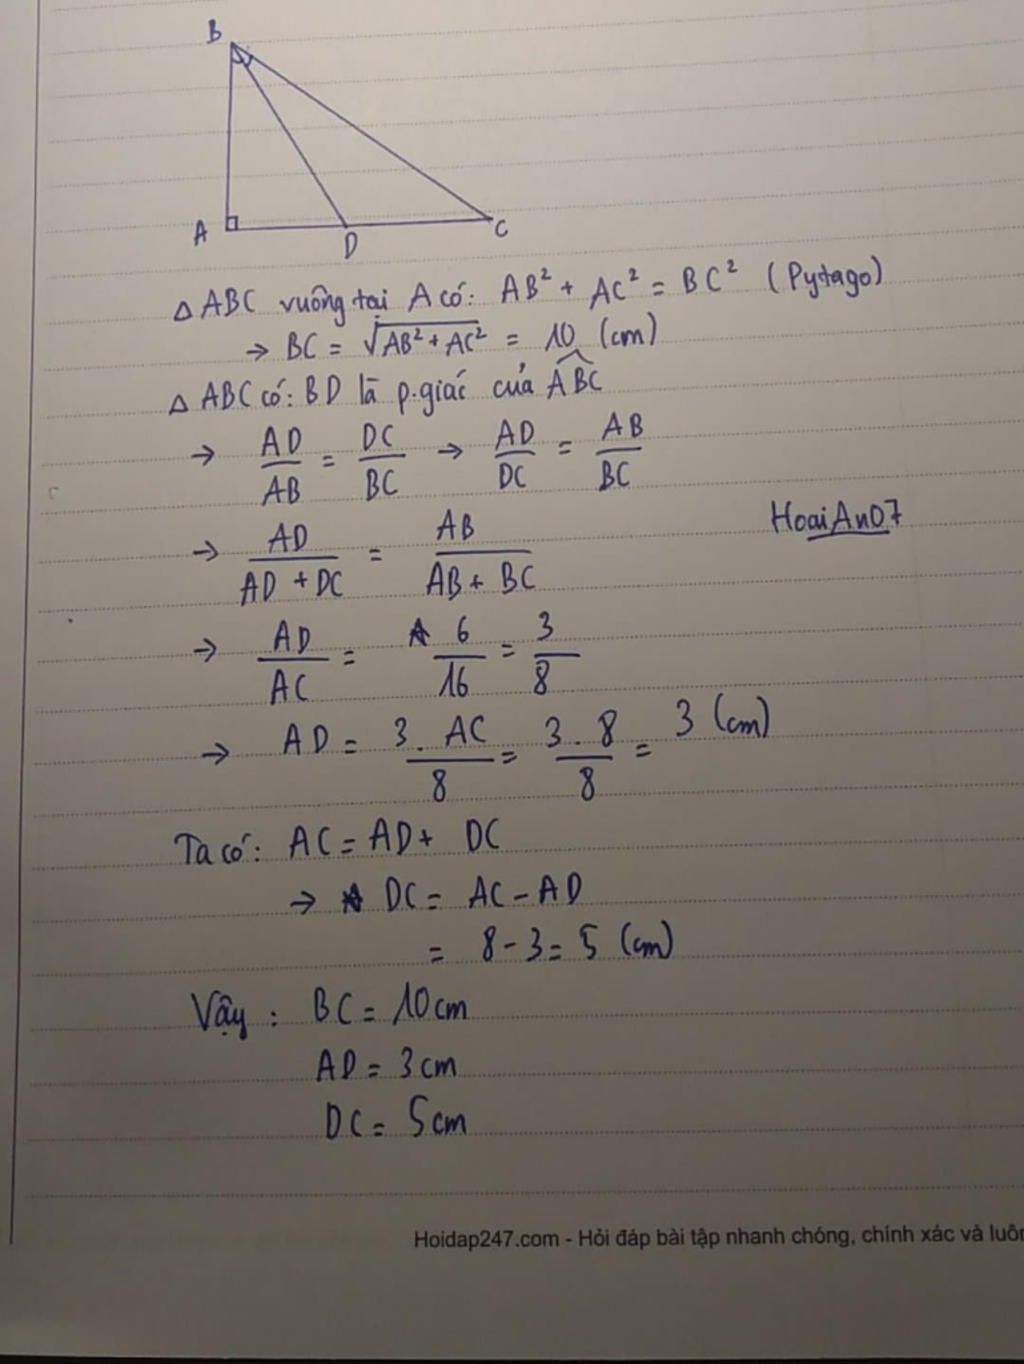 B
A
D
C
△ ABC vuông tại A có: AB² + AC² = BC² (Pytago)
→ BC = √(AB² + AC²) = 10 (cm)
△ ABC có: BD là p.giác của ABC
→ AD/AB = DC/BC → AD/DC = AB/BC
HoaiAn07
→ AD/(AD + DC) = AB/(AB + BC)
→ AD/AC = 6/16 = 3/8
→ AD = 3 . AC/8 = 3 . 8/8 = 3 (cm)
Ta có: AC = AD + DC
→ DC = AC - AD
= 8 - 3 = 5 (cm)
Vậy : BC = 10 cm
AD = 3 cm
DC = 5 cm
Hoidap247.com - Hỏi đáp bài tập nhanh chóng, chính xác và luôn